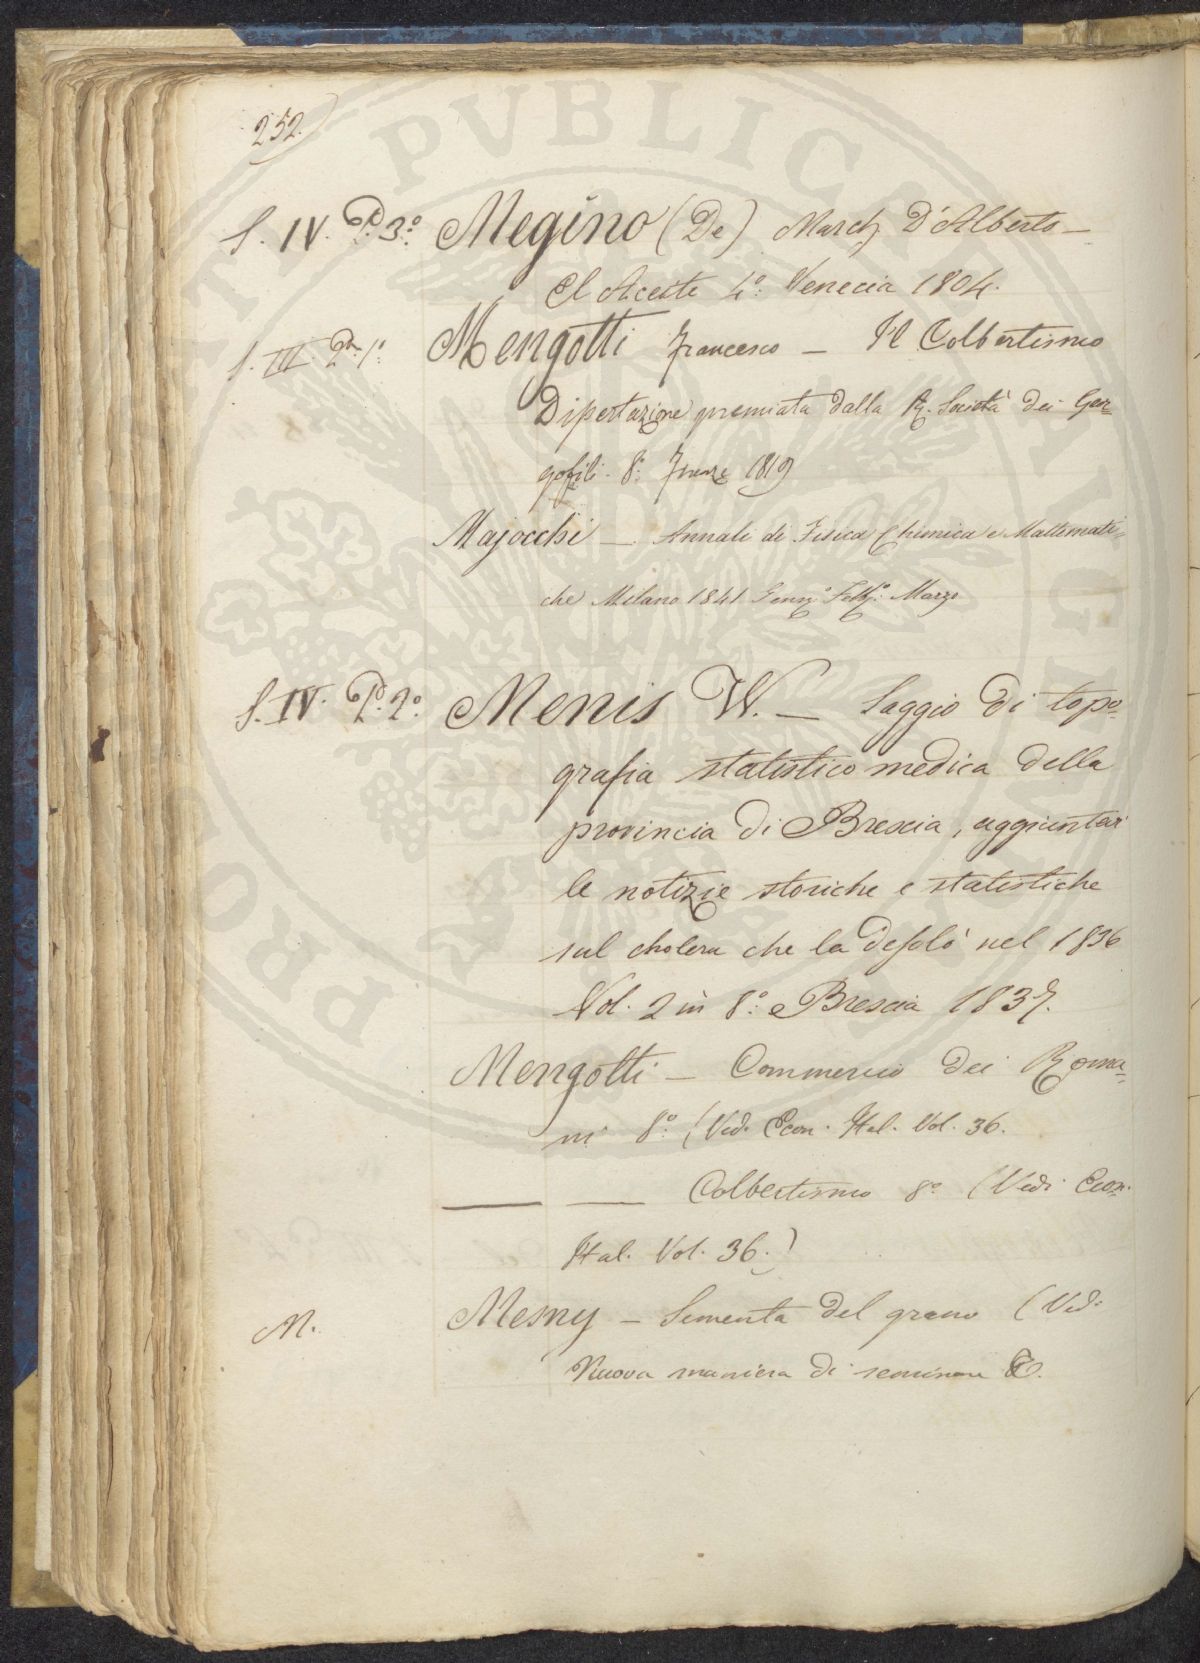 252.
S. IV. Pt. 3.º Megino (De) March D'Alberto —
El Aceite 4.º Venecia 1804.
S. III. Pt. 1.º Mengotti Francesco — Il Colbertismo
Dissertazione premiata dalla R. Società dei Geor-
gofili. 8.º Firenze 1819
Majocchi — Annali di Fisica Chimica e Mattemati-
che Milano 1841 Genn.º Febb.º Marzo
S. IV. Pt. 2.º Menis W. — Saggio di topo-
grafia statistico medica della
provincia di Brescia, aggiuntevi
le notizie storiche e statistiche
sul cholera che la desolò nel 1836
Vol. 2 in 8.º Brescia 1837.
Mengotti — Commercio dei Roma-
ni 8.º (Ved. Econ. Ital. Vol. 36.
— — Colbertismo 8.º (Vedi Econ.
Ital. Vol. 36.)
M. Memy — Sementa del grano (Ved.
Nuova maniera di seminare &.
PROPRIETATI PVBLICAE VICINI